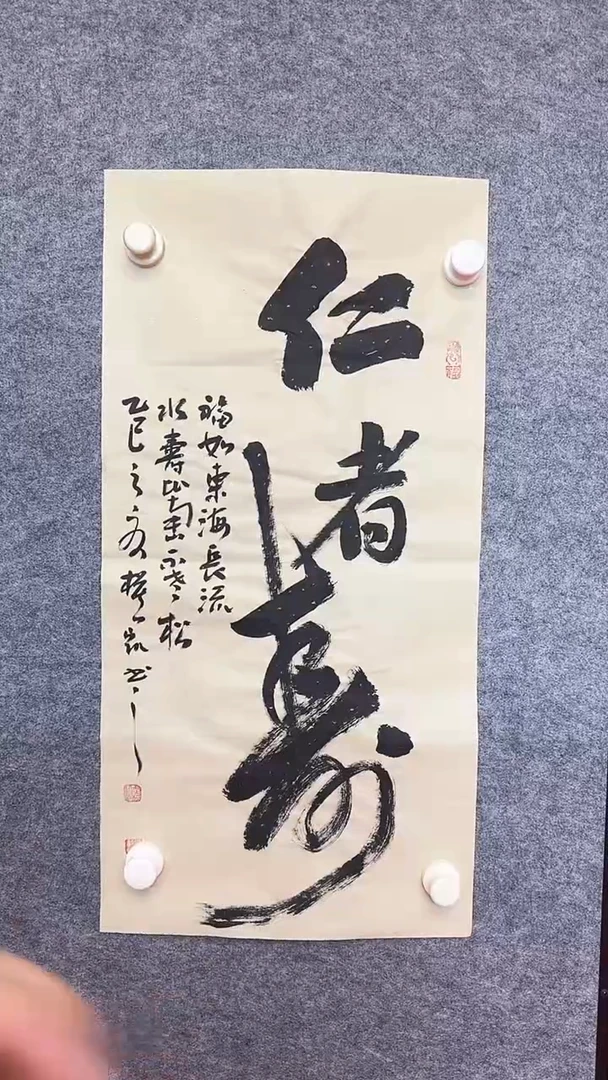 仁者壽
福如東海長流
水壽比南山不老松
乙巳之
書